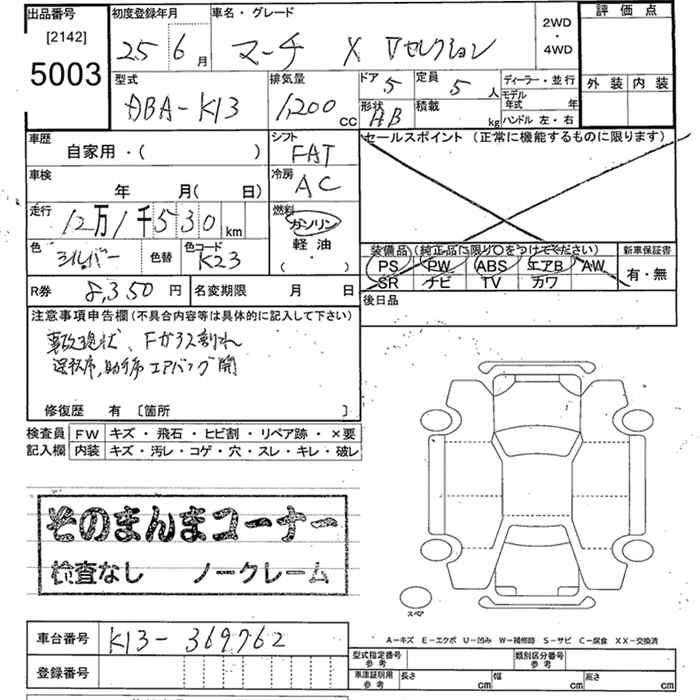 出品番号
[2142]
5003
初度登録年月
25 6 月
車名・グレード
マーチ X Vセレクション
2WD
・
4WD
評価点
外装 内装
型式
DBA-K13
排気量
1,200 cc
ドア 5
形状 HB
定員 5 人
積載 kg
ディーラー・並行
モデル年式 年
ハンドル 左・右
車歴
自家用・( )
シフト
FAT
車検
年 月( 日)
冷房
AC
走行
12万1千530 km
燃料
ガソリン
軽油
( ・ )
色
シルバー
色替
色コード
K23
セールスポイント (正常に機能するものに限ります)
装備品(純正品に限り○をつけてください)
PS PW ABS エアB AW
SR ナビ TV カワ
新車保証書
有・無
R券 8,350 円
名変期限 月 日
後日品
注意事項申告欄(不具合内容等は具体的に記入して下さい)
事故現状、Fガラス割れ
運転席,助手席エアバッグ開
修復歴 有 [箇所 ]
検査員 FW キズ・飛石・ヒビ割・リペア跡・×要
記入欄 内装 キズ・汚レ・コゲ・穴・スレ・キレ・破レ
そのまんまコーナー
検査なし ノークレーム
スペア
A-キズ E-エクボ U-凹み W-補修跡 S-サビ C-腐食 XX-交換済
車台番号 K13-369762
登録番号
型式指定番号
参考
類別区分番号
参考
車庫証明用
参考
長さ cm 幅 cm 高さ cm